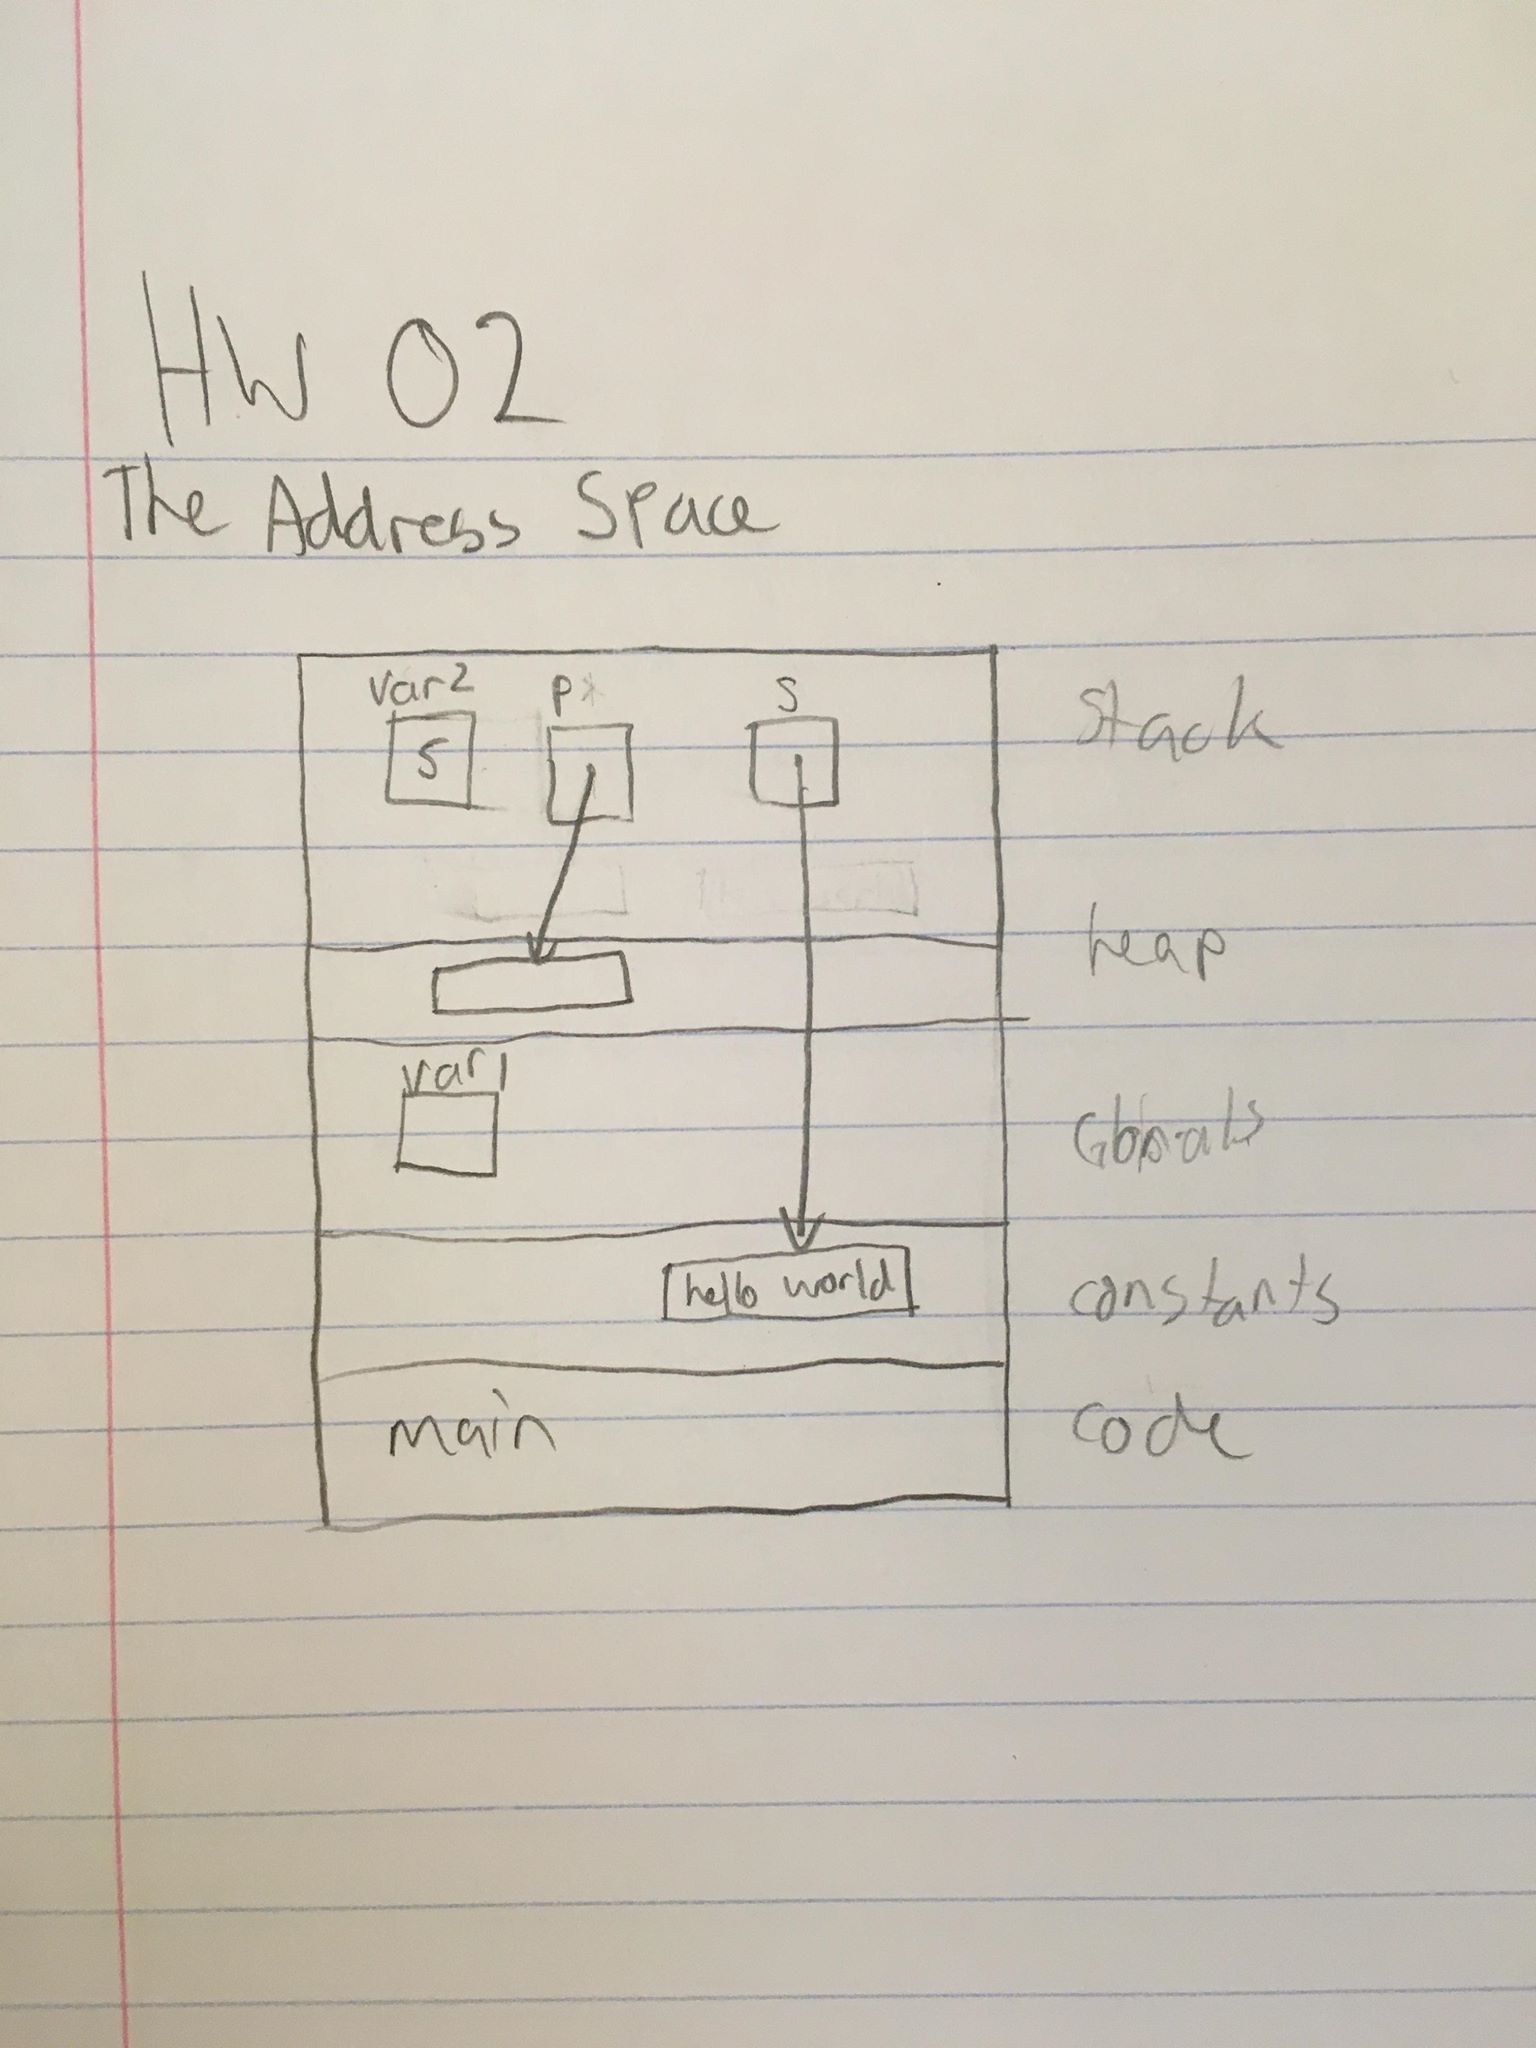 HW 02
The Address Space
var2 p* s
5
stack
heap
var1
Globals
hello world
constants
main
code